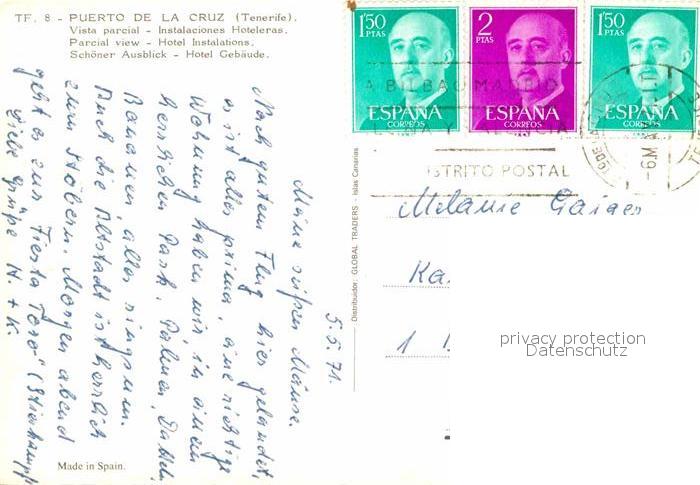 TF. 8 - PUERTO DE LA CRUZ (Tenerife).
Vista parcial - Instalaciones Hoteleras.
Parcial view - Hotel Instalations.
Schöner Ausblick - Hotel Gebäude.
1'50 PTAS
ESPAÑA
CORREOS
2 PTAS
ESPAÑA
CORREOS
1'50 PTAS
ESPAÑA
CORREOS
A BILBAO MADRID
DISTRITO POSTAL
-6 MA
5.5.71.
Meine süßen Mäuse.
Nach gutem Flug hier gelandet,
ist alles prima, eine richtige
Wohnung haben wir, in einem
herrlichen Park, Palmen, Datteln,
Bananen, alles ringsum.
Auch die Altstadt ist herrlich
zum Stöbern. Morgen abend
geht es zur "Fiesta Toro" (Stierkampf)
Liebe Grüße H. + K.
Made in Spain.
Distribuidor: GLOBAL TRADERS - Islas Canarias
Melanie
Ka
1
privacy protection
Datenschutz